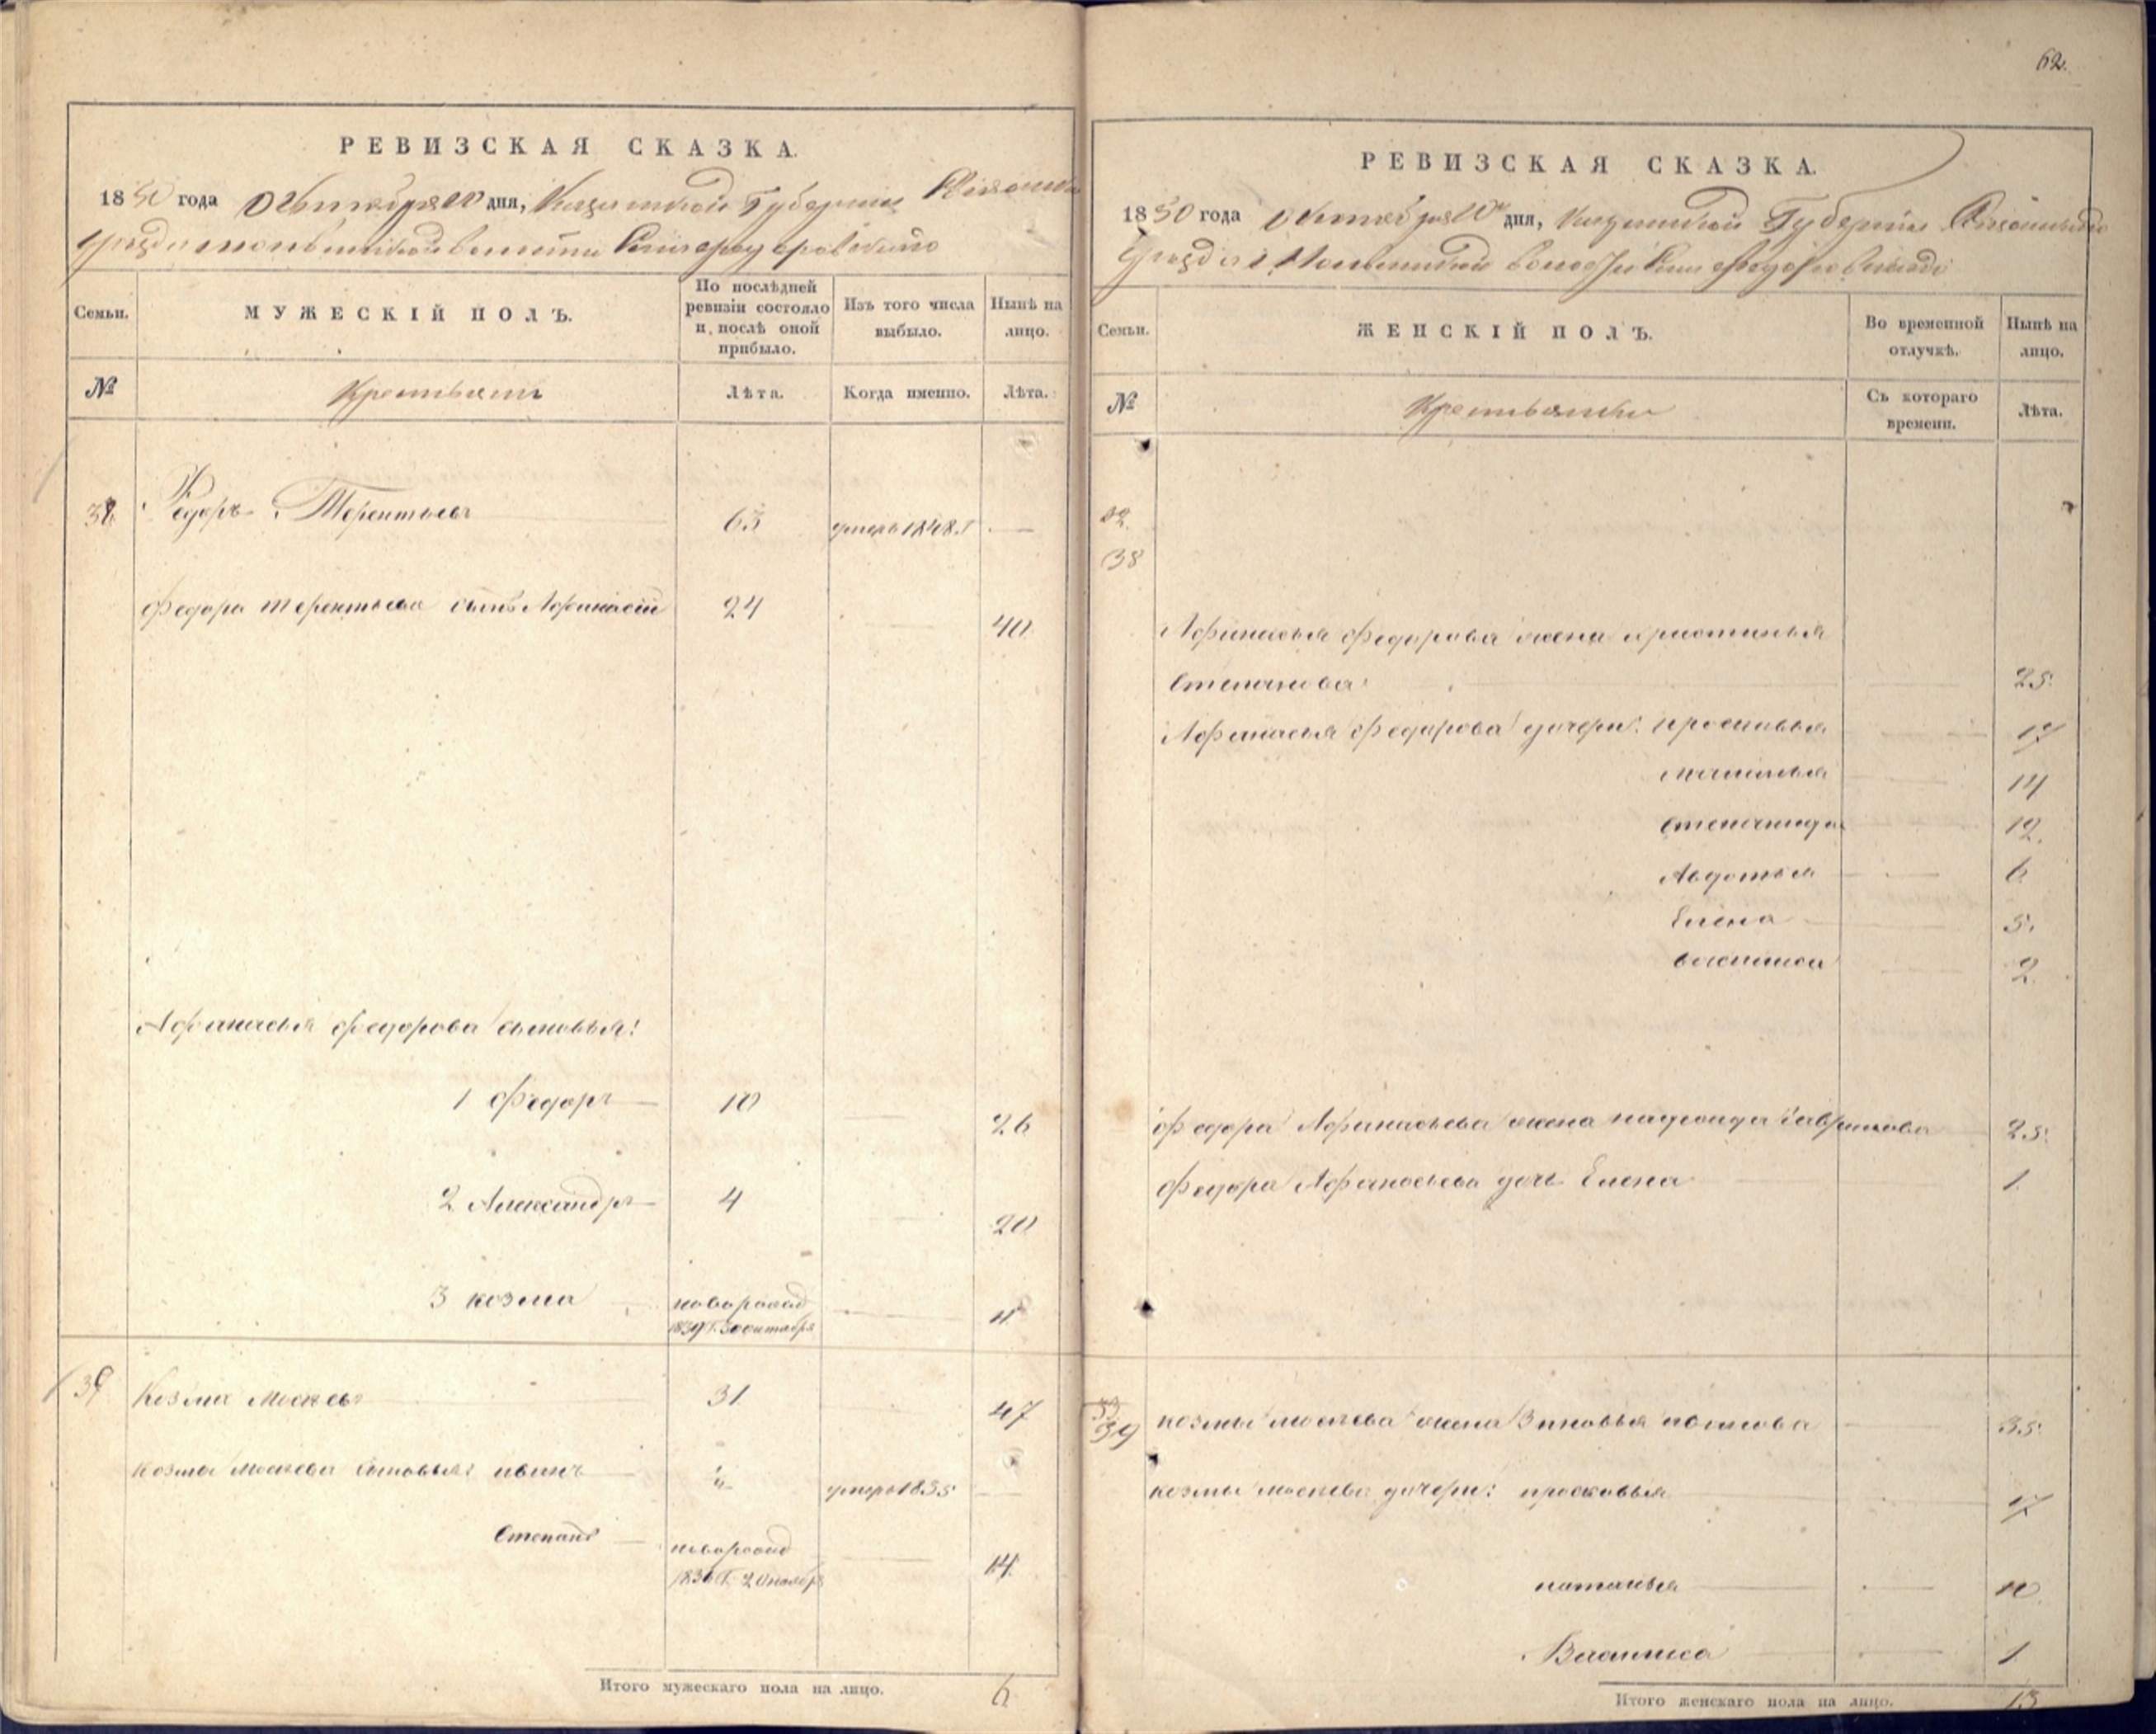 62.
РЕВИЗСКАЯ СКАЗКА.
1850 года Октября 20 дня, Казанской Губернии
уезда волости Села Федоровскаго
Семьи.
МУЖЕСКІЙ ПОЛЪ.
По послѣдней ревизіи состояло и, послѣ оной прибыло.
Изъ того числа выбыло.
Нынѣ на лицо.
№
Крестьяне
Лѣта.
Когда именно.
Лѣта.
38 Федоръ Терентьевъ 63 умеръ 1848. Г —
Федора терентьева сынъ Афанасій 24 — 40
Афанасья федорова сыновья:
1 Федоръ 10 — 26
2 Александръ 4 — 20
3 козма новорожд — 11
1839 Г. 30 октября
39 Козма Моисевъ 31 — 47
Козмы Моисева сыновья: иванъ умеръ 1835 —
Степанъ новорожд — 14
1836 Г. 20 ноября
Итого мужескаго пола на лицо. 6
РЕВИЗСКАЯ СКАЗКА.
1850 года Октября 20 дня, Казанской Губерніи
Уезда волости Села Федоровскаго
Семьи.
ЖЕНСКІЙ ПОЛЪ.
Во временной отлучкѣ.
Нынѣ на лицо.
№
Крестьянки
Съ котораго времени.
Лѣта.
38
Афанасья Федорова жена христинья
Степанова — 25
Афанасья федорова дочери: просковья — 17
14
степанида — 12.
Авдотья — 6
Елена 5.
васлиса — 2
Федора Афанасьева жена Гаврилова 25
Федора Афанасьева дочь Елена 1
39 козмы моисева жена Зиновья — 35
козмы моисева дочери: просковья — 17
наталья — 10
Васлиса — 1
Итого женскаго пола на лицо. 13